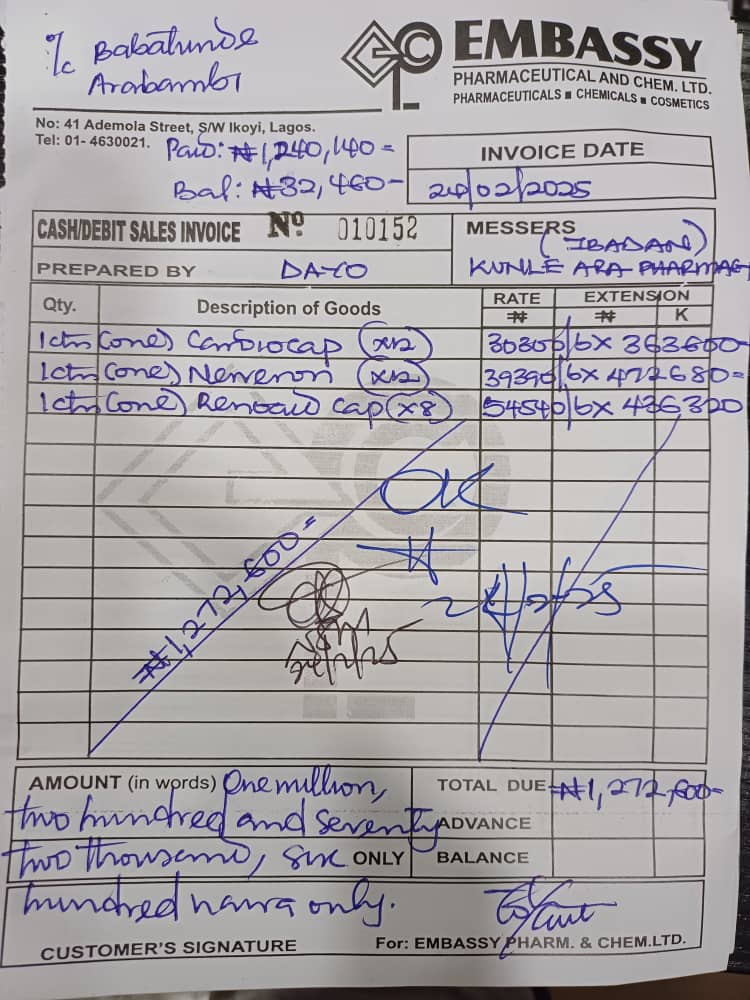 ℅ Babatunde
Arabambi
EMBASSY
PHARMACEUTICAL AND CHEM. LTD.
PHARMACEUTICALS ■ CHEMICALS ■ COSMETICS
No: 41 Ademola Street, S/W Ikoyi, Lagos.
Tel: 01- 4630021.
Paid: ₦1,240,140=
Bal: ₦32,460-
INVOICE DATE
24/02/2025
CASH/DEBIT SALES INVOICE Nº 010152
MESSERS (IBADAN)
KUNLE ARA PHARMACY
PREPARED BY DAYO
Qty. Description of Goods RATE ₦ EXTENSION ₦ K
1ctn (one) Cardiocap (x12) 30300/6x 363600-
1ctn (one) Nerveron (x12) 39390/6x 472680=
1ctn (one) Renoaid cap (x8) 54540/6x 436320
OK
₦1,272,600=
NSM
24/2/25
24/2/25
AMOUNT (in words) One million,
two hundred and seventy
two thousand, six ONLY
hundred naira only.
TOTAL DUE ₦1,272,600-
ADVANCE
BALANCE
CUSTOMER'S SIGNATURE
For: EMBASSY PHARM. & CHEM.LTD.